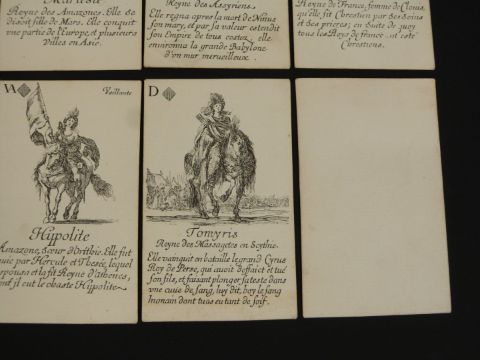 Reyne des Amazones. Elle se
disoit fille de Mars. Elle conquit
une partie de l'Europe, et plusieurs
Villes en Asie.
Reyne des Assyriens.
Elle regna apres la mort de Ninus
son mary, et par sa valeur estendit
son Empire de tous costez, elle
environna la grande Babylone
d'un mur merveilleux.
Reyne de France, femme de Clovis,
qu'elle fit Chrestien par ses soins
et des prieres; en suite de quoy
tous les Roys de france ont esté
Chrestiens.
VA
Vaillante
Hippolite
Amazone, Sœur d'Orithie. Elle fut
par Hercule et Thesée, lequel
l'épousa et la fit Reyne d'Athenes,
dont il eut le chaste Hippolite
D
Tomyris
Reyne des Massagetes en Scythie.
Elle vanquit en bataille le grand Cyrus
Roy de Perse, qui avoit deffaict et tué
son fils, et faisant plonger sa teste dans
une cuve de sang, luy dit, boy le sang
humain dont tu as eu tant de soif.